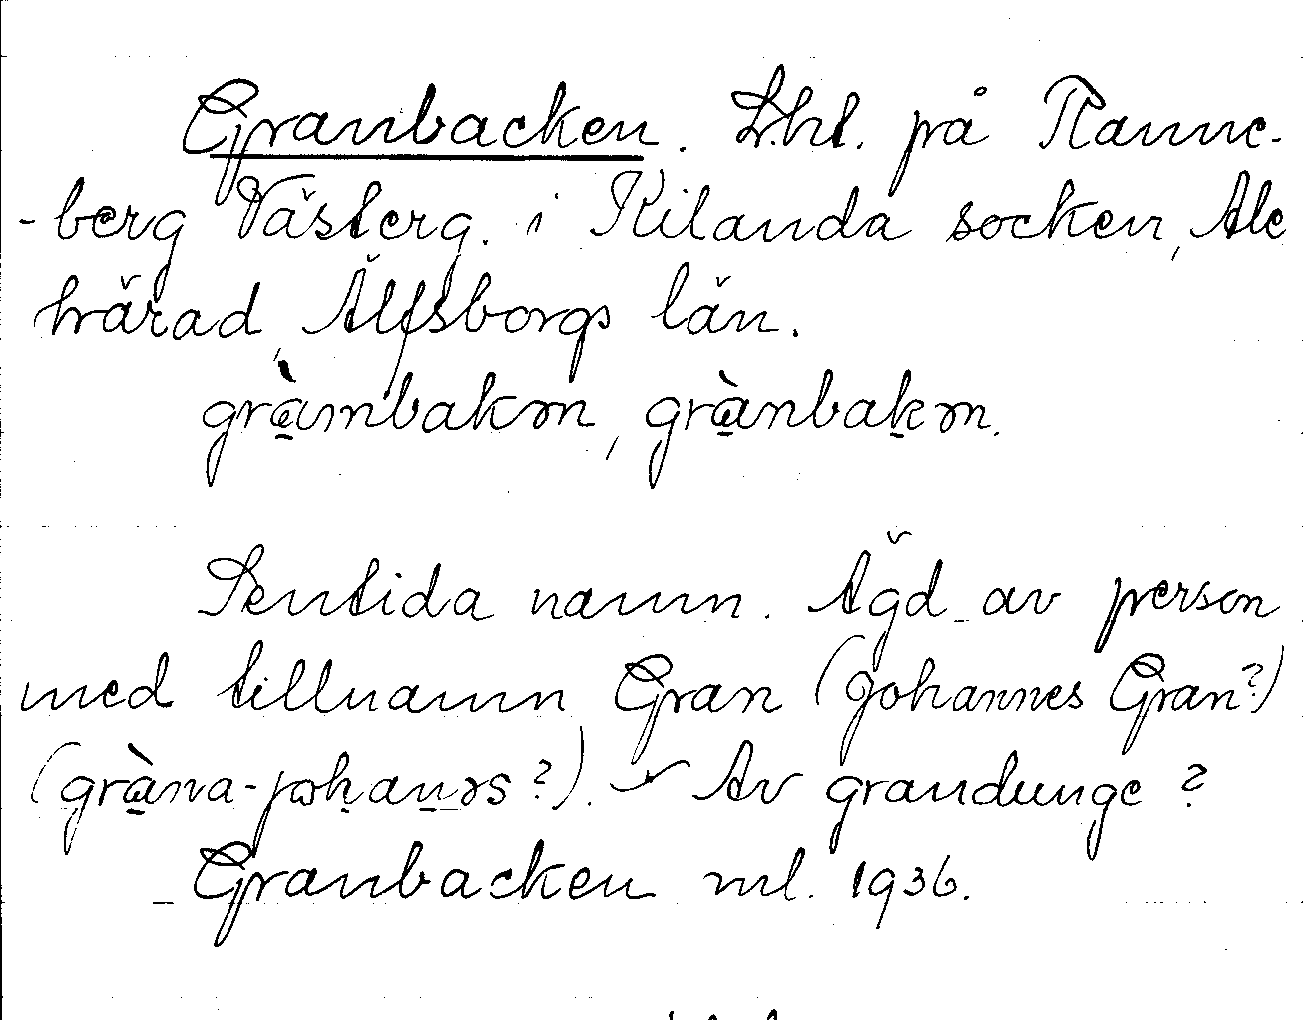 Granbacken. Lht. på Ranne-
-berg Västerg. i Kilanda socken, Ale
härad, Älfsborgs län.
gràmbakən, grànbakən.
Sentida namn. Ägd av person
med tillnamn Gran (Johannes Gran?)
(gràna-johanəs?). – Av grandunge?
Granbacken ml. 1936.